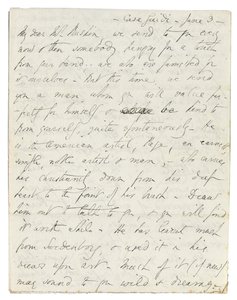 Casa Guidi - June 3 -
My dear Mr Ruskin, we send to you every
now & then somebody hungry for a touch
from your hand: we who are famished for
it ourselves - But this time, we send
you a man whom you will value for
himself & be kind to
from yourself, quite spontaneously - He
is the American artist, Page, an earnest
simple noble artist & man, - who carries
his Christianity down from his deep
heart to the point of his brush - Draw
him out to talk to you, & you will find
it worth while - He has learnt much
from Swedenborg & used it in his
views upon art - Much of it (if new)
may sound to you wild & dreamy -